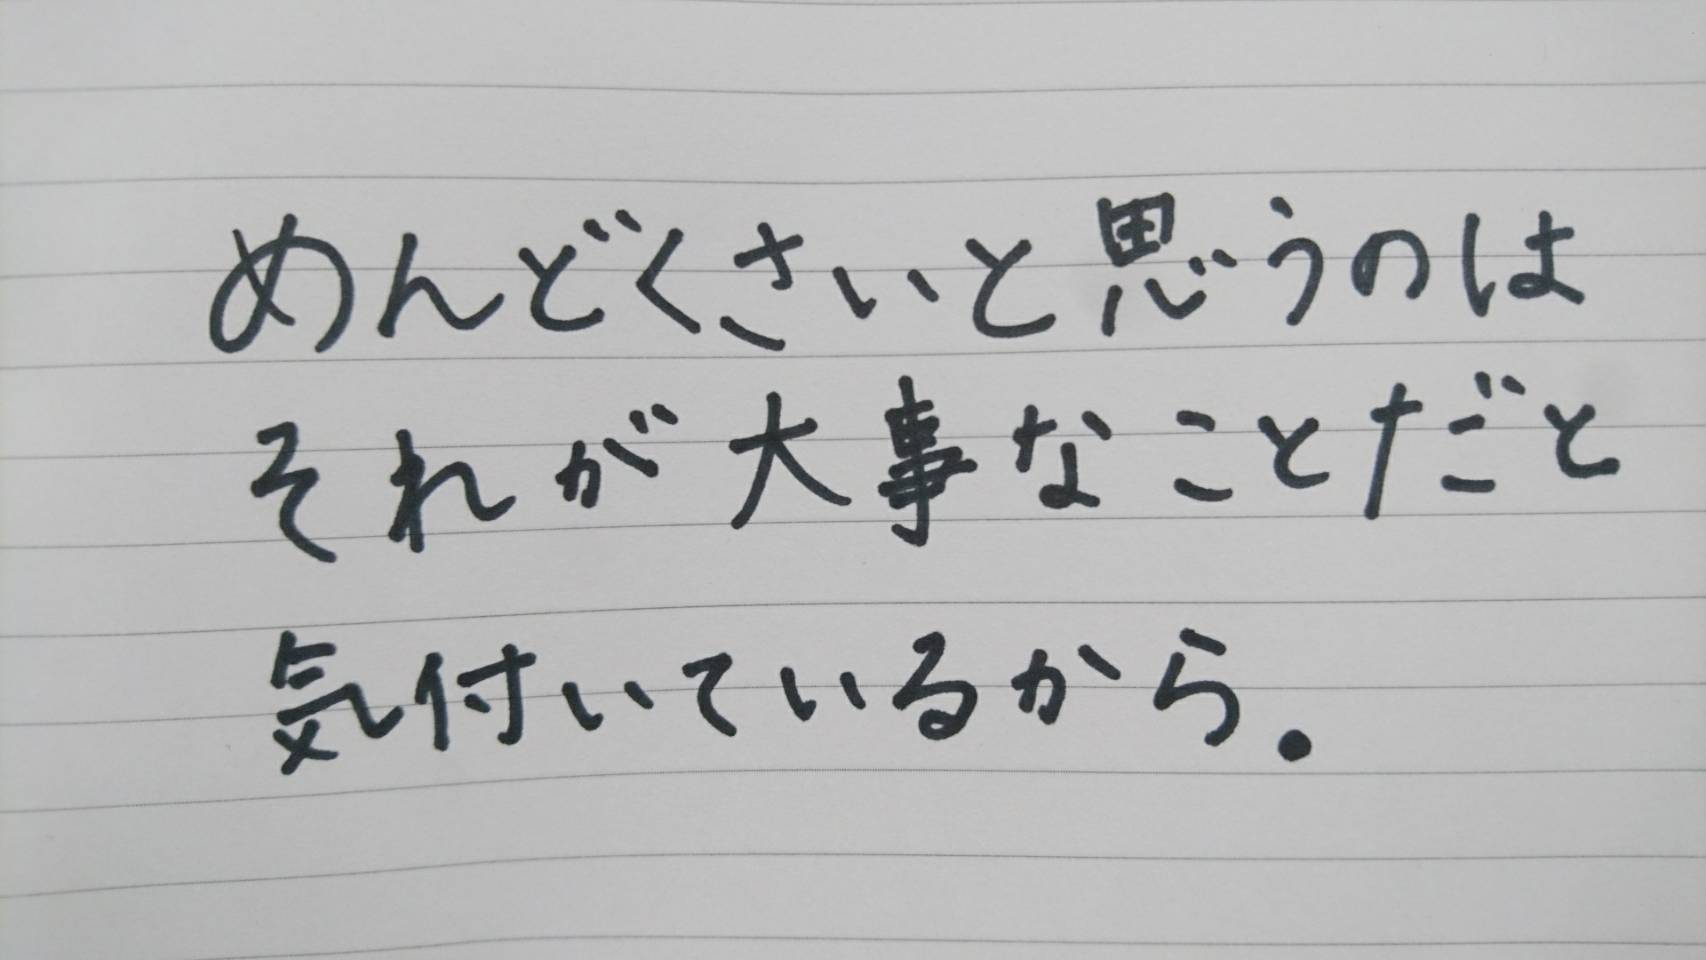 めんどくさいと思うのは
それが大事なことだと
気付いているから.